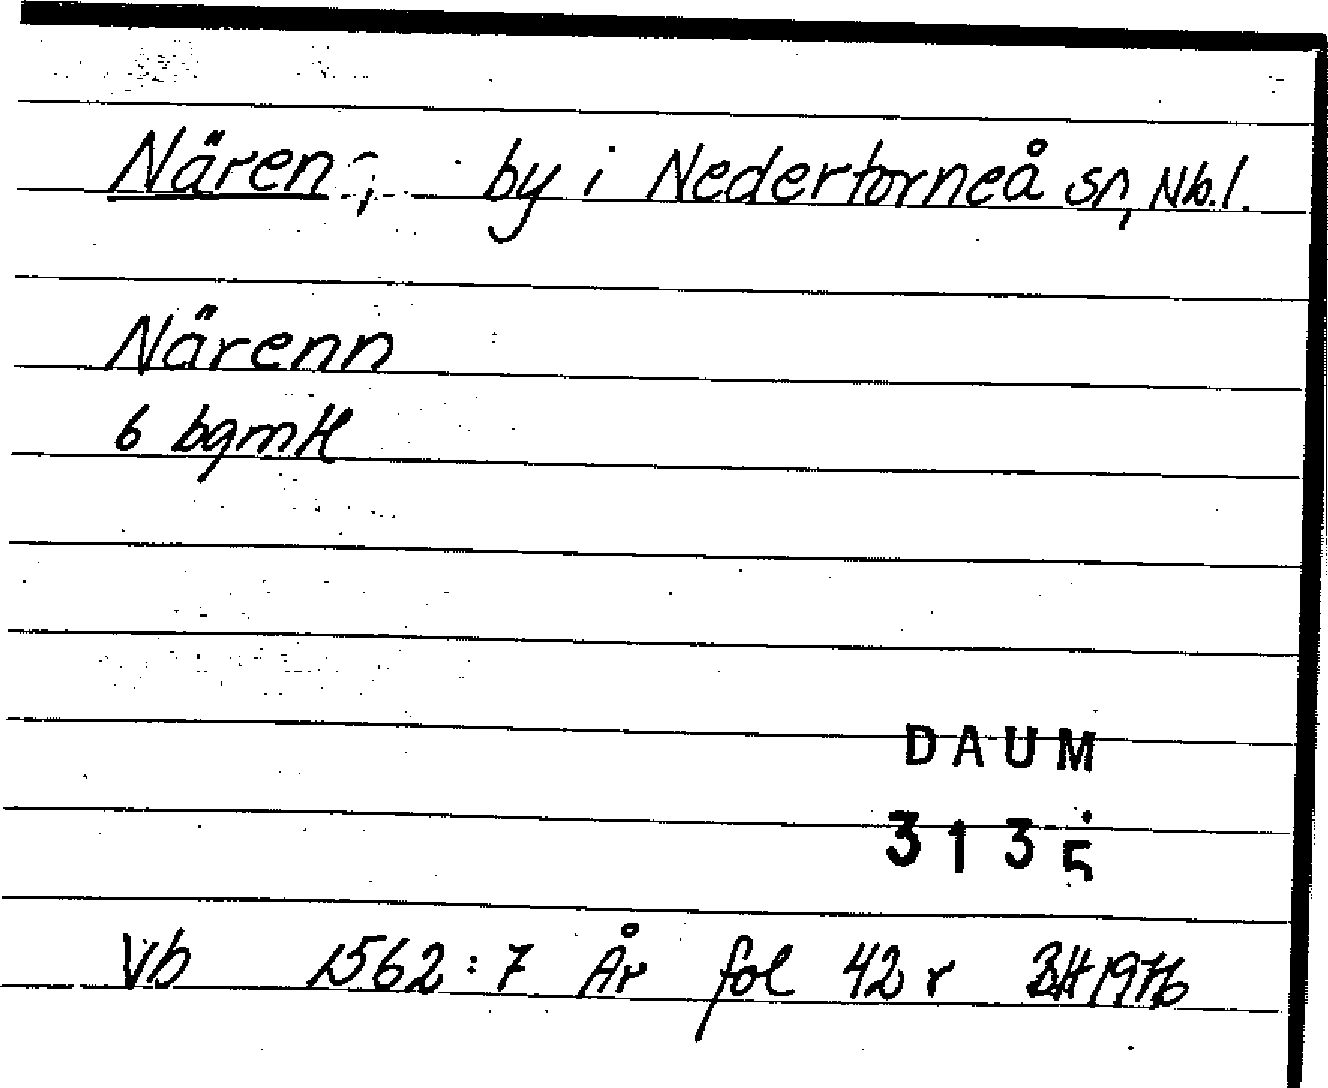 Nären, by i Nedertorneå sn, Nb.l.
Närenn
6 bgmH
DAUM
3135
Vb 1562:7 År fol 42 r BH 1976